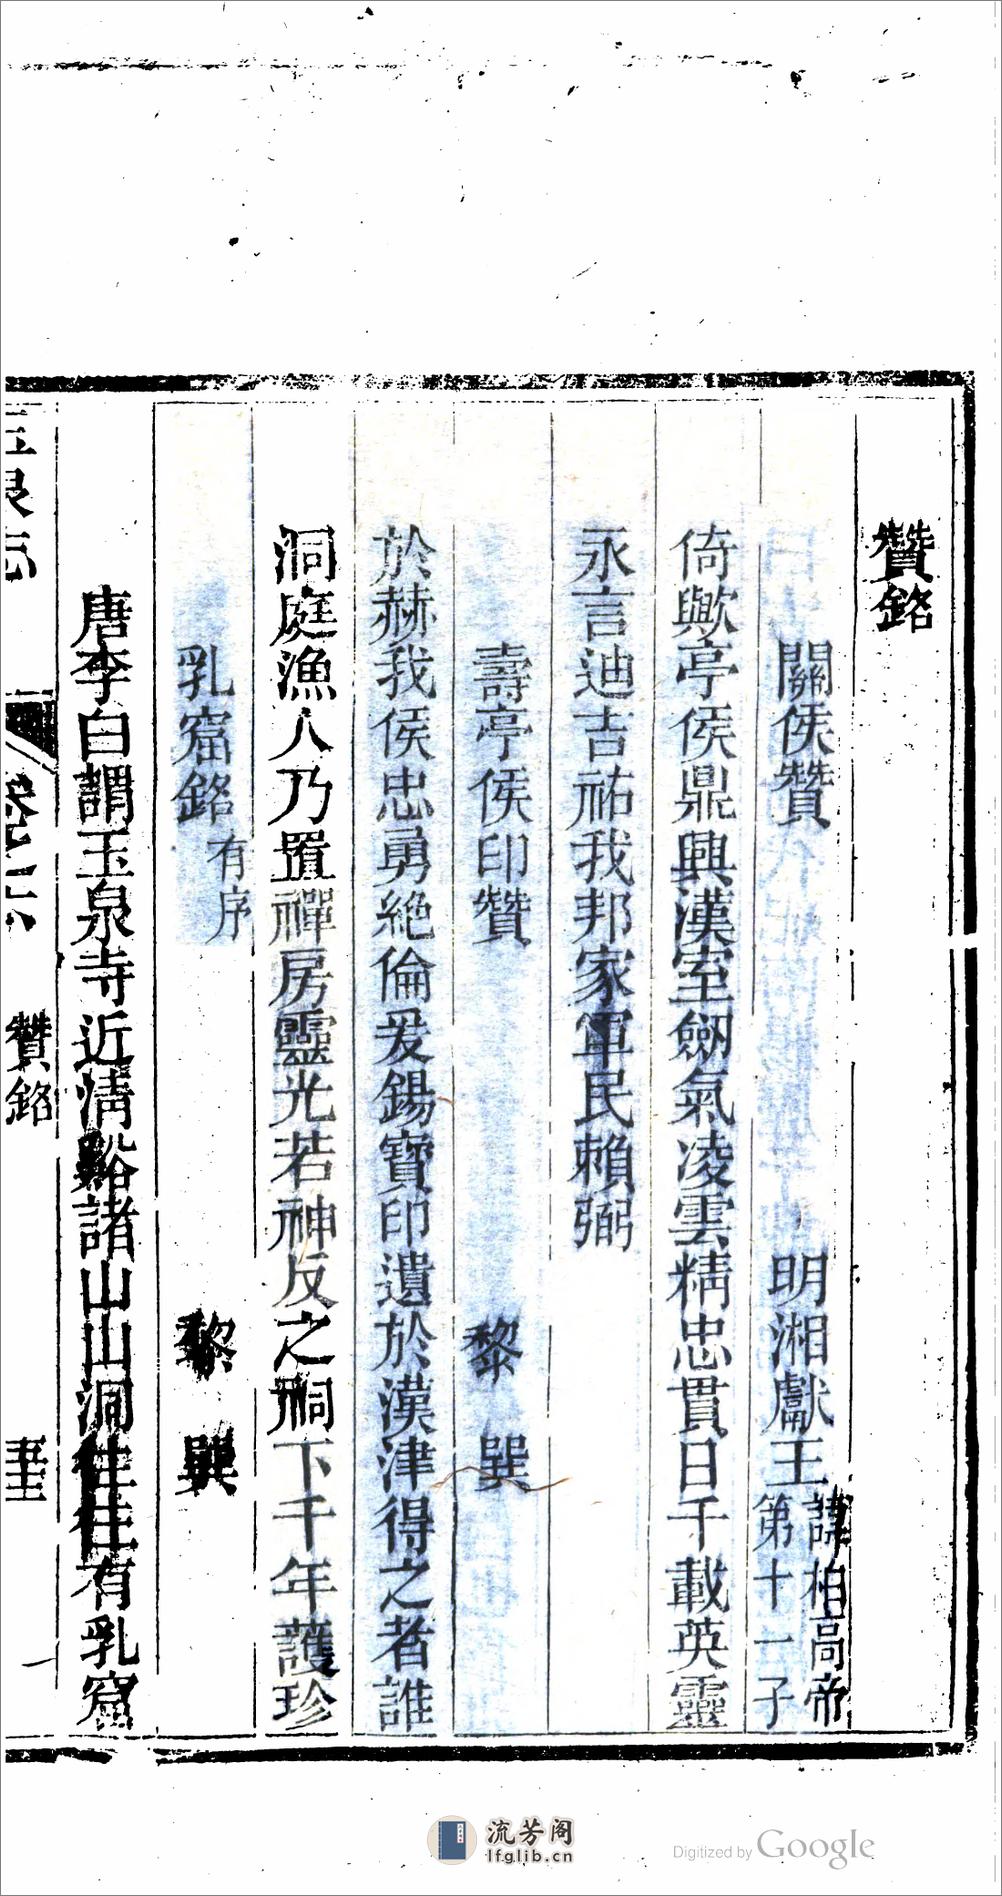 贊銘
關侯贊 明湘獻王 諱柏高帝第十一子
倚歟亭侯鼎興漢室劒氣凌雲精忠貫日千載英靈
永言迪吉祐我邦家軍民賴弼
壽亭侯印贊 黎巽
於赫我侯忠勇絶倫爰錫寶印遺於漢津得之者誰
洞庭漁人乃置禪房靈光若神反之祠下千年護珍
乳窟銘 有序 黎巽
唐李白謂玉泉寺近清谿諸山山洞徃徃有乳窟
玉泉志 卷之六 贊銘 一
流芳阁
lfglib.cn
Digitized by Google